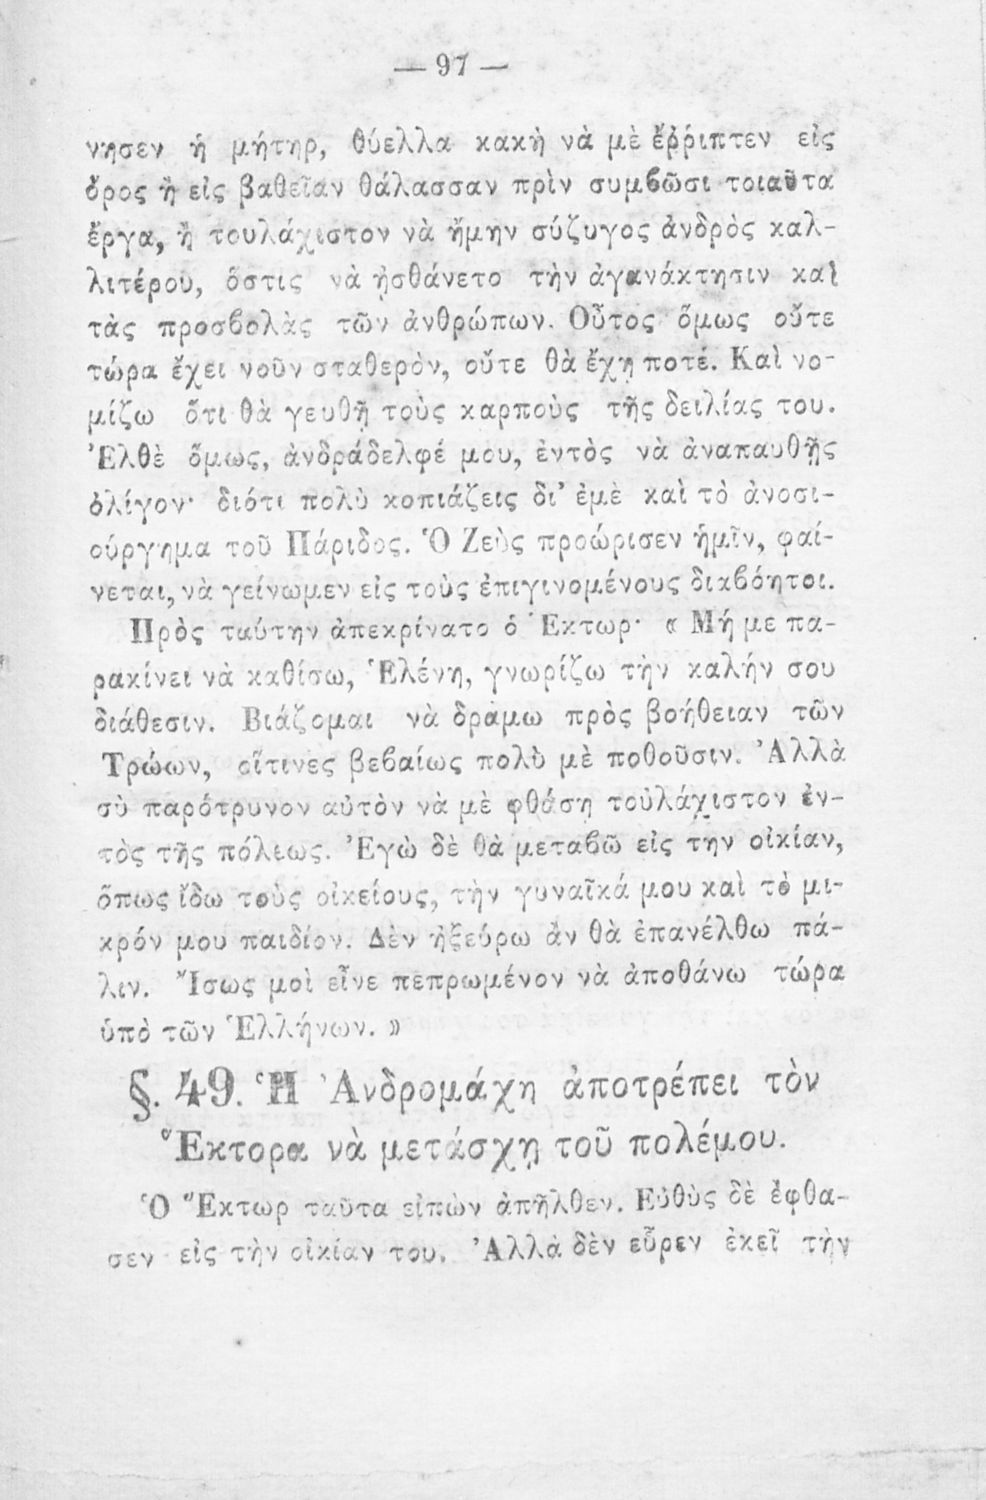 — 97 —
νησεν ἡ μήτηρ, θύελλα κακὴ νὰ μὲ ἔῤῥιπτεν εἰς
ὄρος ἢ εἰς βαθεῖαν θάλασσαν πρὶν συμβῶσι τοιαῦτα
ἔργα, ἢ τουλάχιστον νὰ ἤμην σύζυγος ἀνδρὸς καλ-
λιτέρου, ὅστις νὰ ᾐσθάνετο τὴν ἀγανάκτησιν καὶ
τὰς προσβολὰς τῶν ἀνθρώπων. Οὗτος ὅμως οὔτε
τώρα ἔχει νοῦν σταθερὸν, οὔτε θὰ ἔχῃ ποτέ. Καὶ νο-
μίζω ὅτι θὰ γευθῇ τοὺς καρποὺς τῆς δειλίας του.
Ἐλθὲ ὅμως, ἀνδράδελφέ μου, ἐντὸς νὰ ἀναπαυθῇς
ὀλίγον· διότι πολὺ κοπιάζεις δι’ ἐμὲ καὶ τὸ ἀνοσι-
ούργημα τοῦ Πάριδος. Ὁ Ζεὺς προώρισεν ἡμῖν, φαί-
νεται, νὰ γείνωμεν εἰς τοὺς ἐπιγινομένους διαβόητοι.
Πρὸς ταύτην ἀπεκρίνατο ὁ Ἕκτωρ· « Μή με πα-
ρακίνει νὰ καθίσω, Ἑλένη, γνωρίζω τὴν καλήν σου
διάθεσιν. Βιάζομαι νὰ δράμω πρὸς βοήθειαν τῶν
Τρώων, οἵτινες βεβαίως πολὺ μὲ ποθοῦσιν. Ἀλλὰ
σὺ παρότρυνον αὐτὸν νὰ μὲ φθάσῃ τοὐλάχιστον ἐν-
τὸς τῆς πόλεως. Ἐγὼ δὲ θὰ μεταβῶ εἰς την οἰκίαν,
ὅπως ἴδω τοὺς οἰκείους, τὴν γυναῖκά μου καὶ τὸ μι-
κρόν μου παιδίον. Δὲν ἠξεύρω ἂν θὰ ἐπανέλθω πά-
λιν. Ἴσως μοὶ εἶνε πεπρωμένον νὰ ἀποθάνω τώρα
ὑπὸ τῶν Ἑλλήνων. »
§. 49. Ἡ Ἀνδρομάχη ἀποτρέπει τὸν
Ἕκτορα νὰ μετάσχῃ τοῦ πολέμου.
Ὁ Ἕκτωρ ταῦτα εἰπὼν ἀπῆλθεν. Εὐθὺς δὲ ἔφθα-
σεν εἰς τὴν οἰκίαν του. Ἀλλὰ δὲν εὗρεν ἐκεῖ τὴν